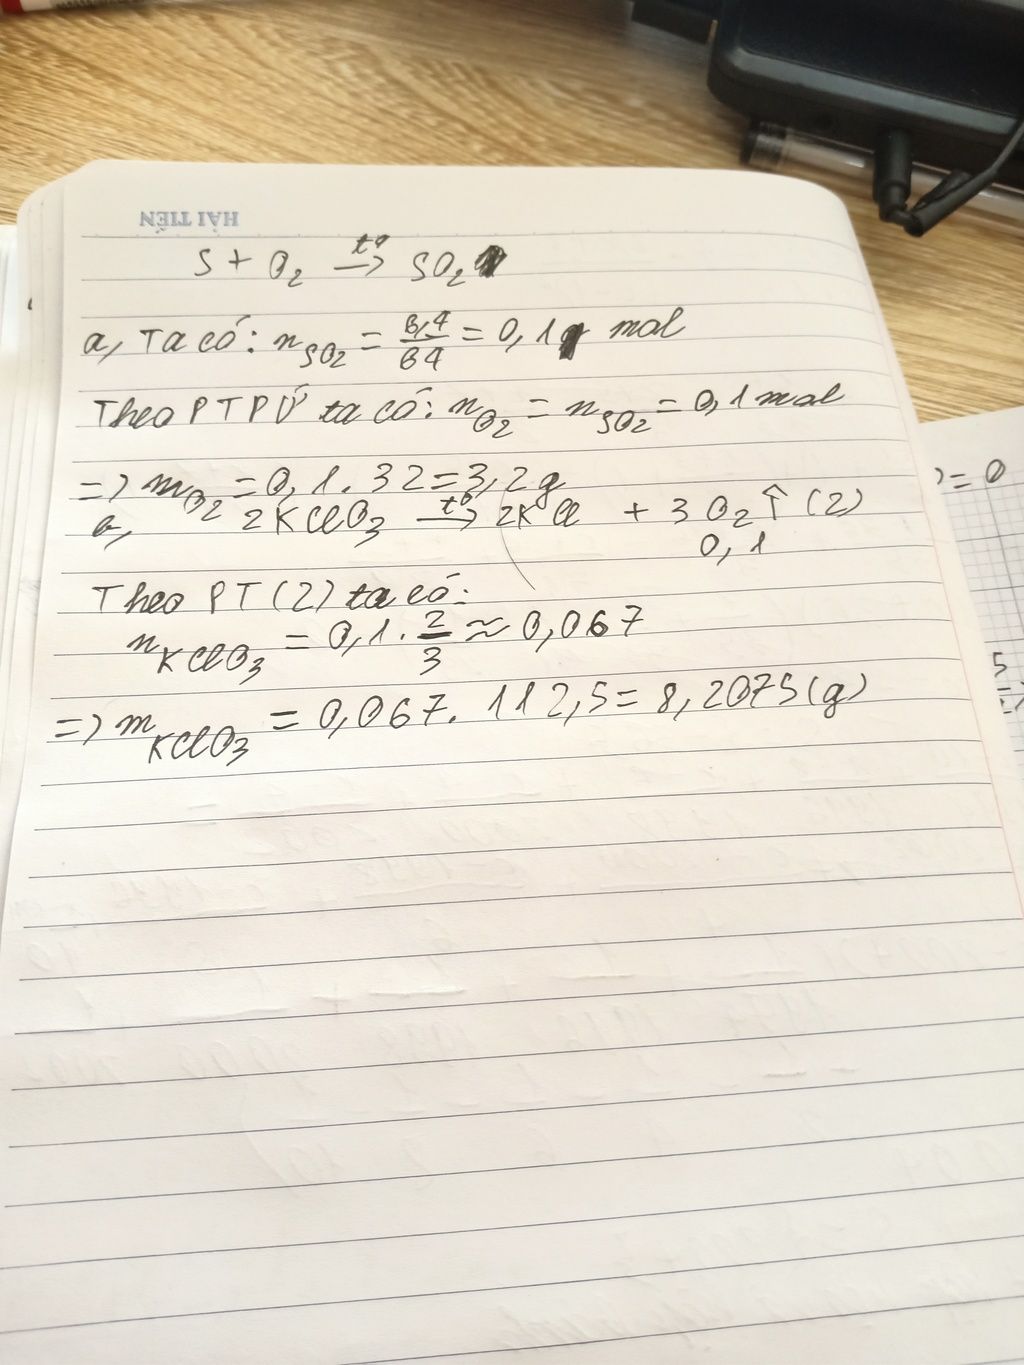 HẢI TIẾN
S + O₂ t° → SO₂
a, Ta có: n SO₂ = 6,4/64 = 0,1 mol
Theo PTPƯ ta có: n O₂ = n SO₂ = 0,1 mol
=> m O₂ = 0,1 . 32 = 3,2g
b, 2KClO₃ t° → 2KCl + 3O₂ ↑ (2)
0,1
Theo PT (2) ta có:
n KClO₃ = 0,1 . 2/3 ≈ 0,067
=> m KClO₃ = 0,067 . 112,5 = 8,2075 (g)
= 0
5